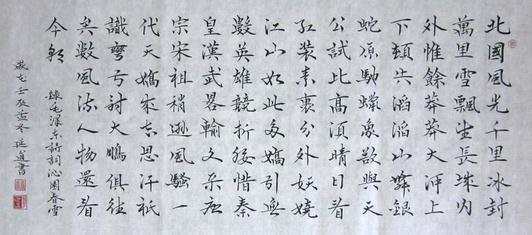 北國風光千里冰封
萬里雪飄望長城内
外惟餘莽莽大河上
下頓失滔滔山舞銀
蛇原馳蠟象欲與天
公試比高須晴日看
紅裝素裹分外妖嬈
江山如此多嬌引無
數英雄競折腰惜秦
皇漢武畧輸文采唐
宗宋祖稍遜風騷一
代天嬌成吉思汗祇
識彎弓射大鵰俱往
矣數風流人物還看
今朝
錄毛澤東詩詞沁園春雪
歲在壬辰冬延道書